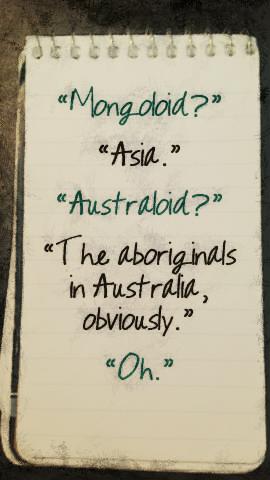 “Mongoloid?”
“Asia.”
“Australoid?”
“The aboriginals
in Australia,
obviously.”
“Oh.”